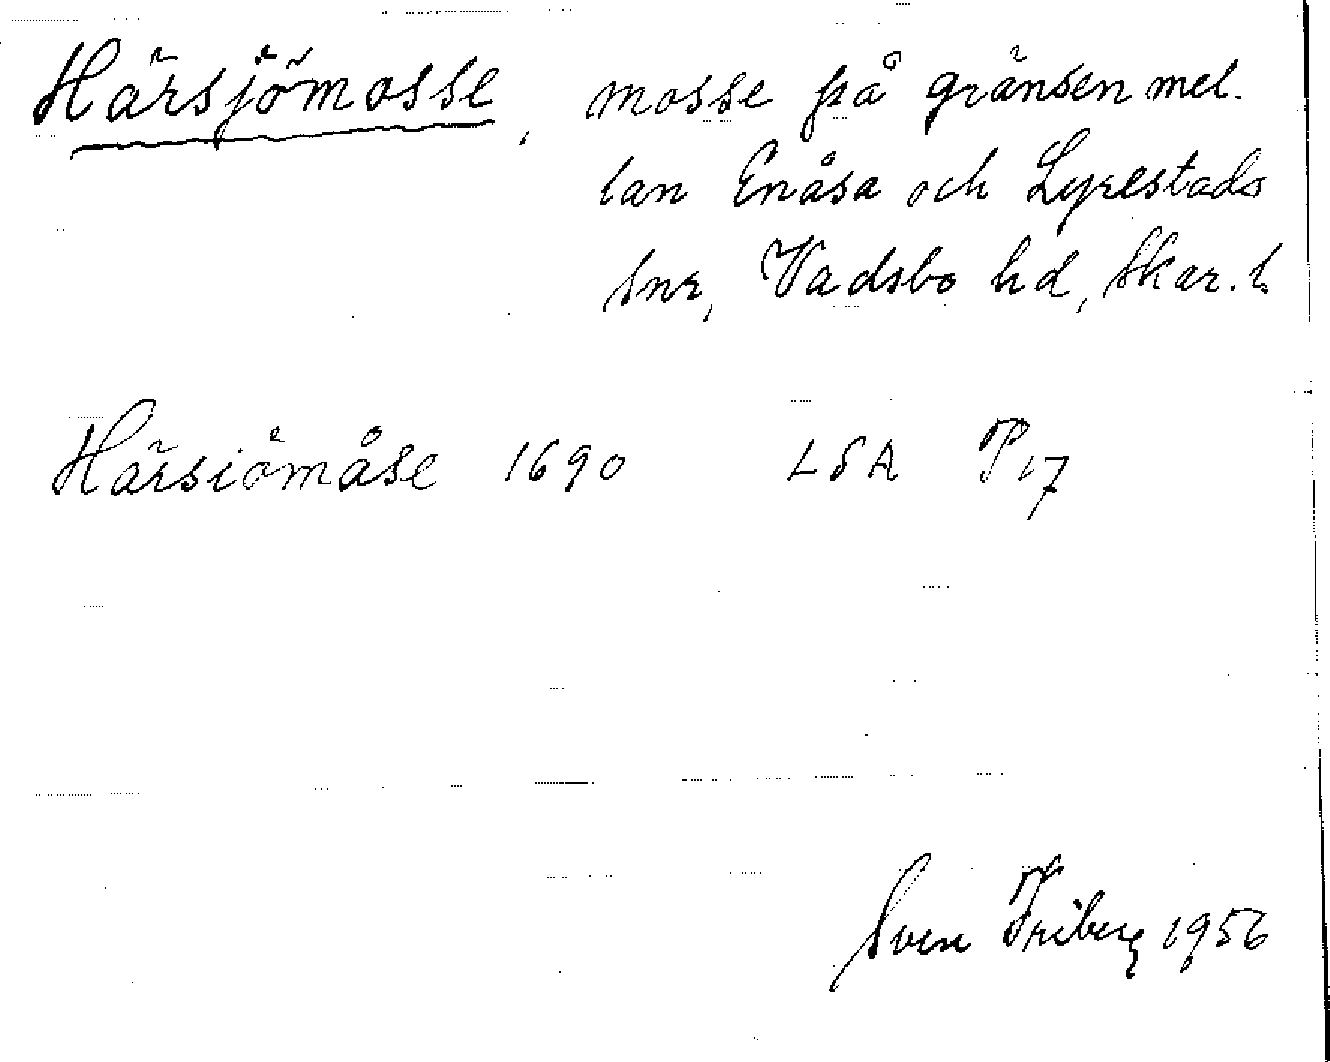 Härsjömosse, mosse på gränsen mel-
lan Enåsa och Lyrestads
snr, Vadsbo hd, Skar. l.
Härsiömåse 1690 LSA P 17
Sven Friberg 1956